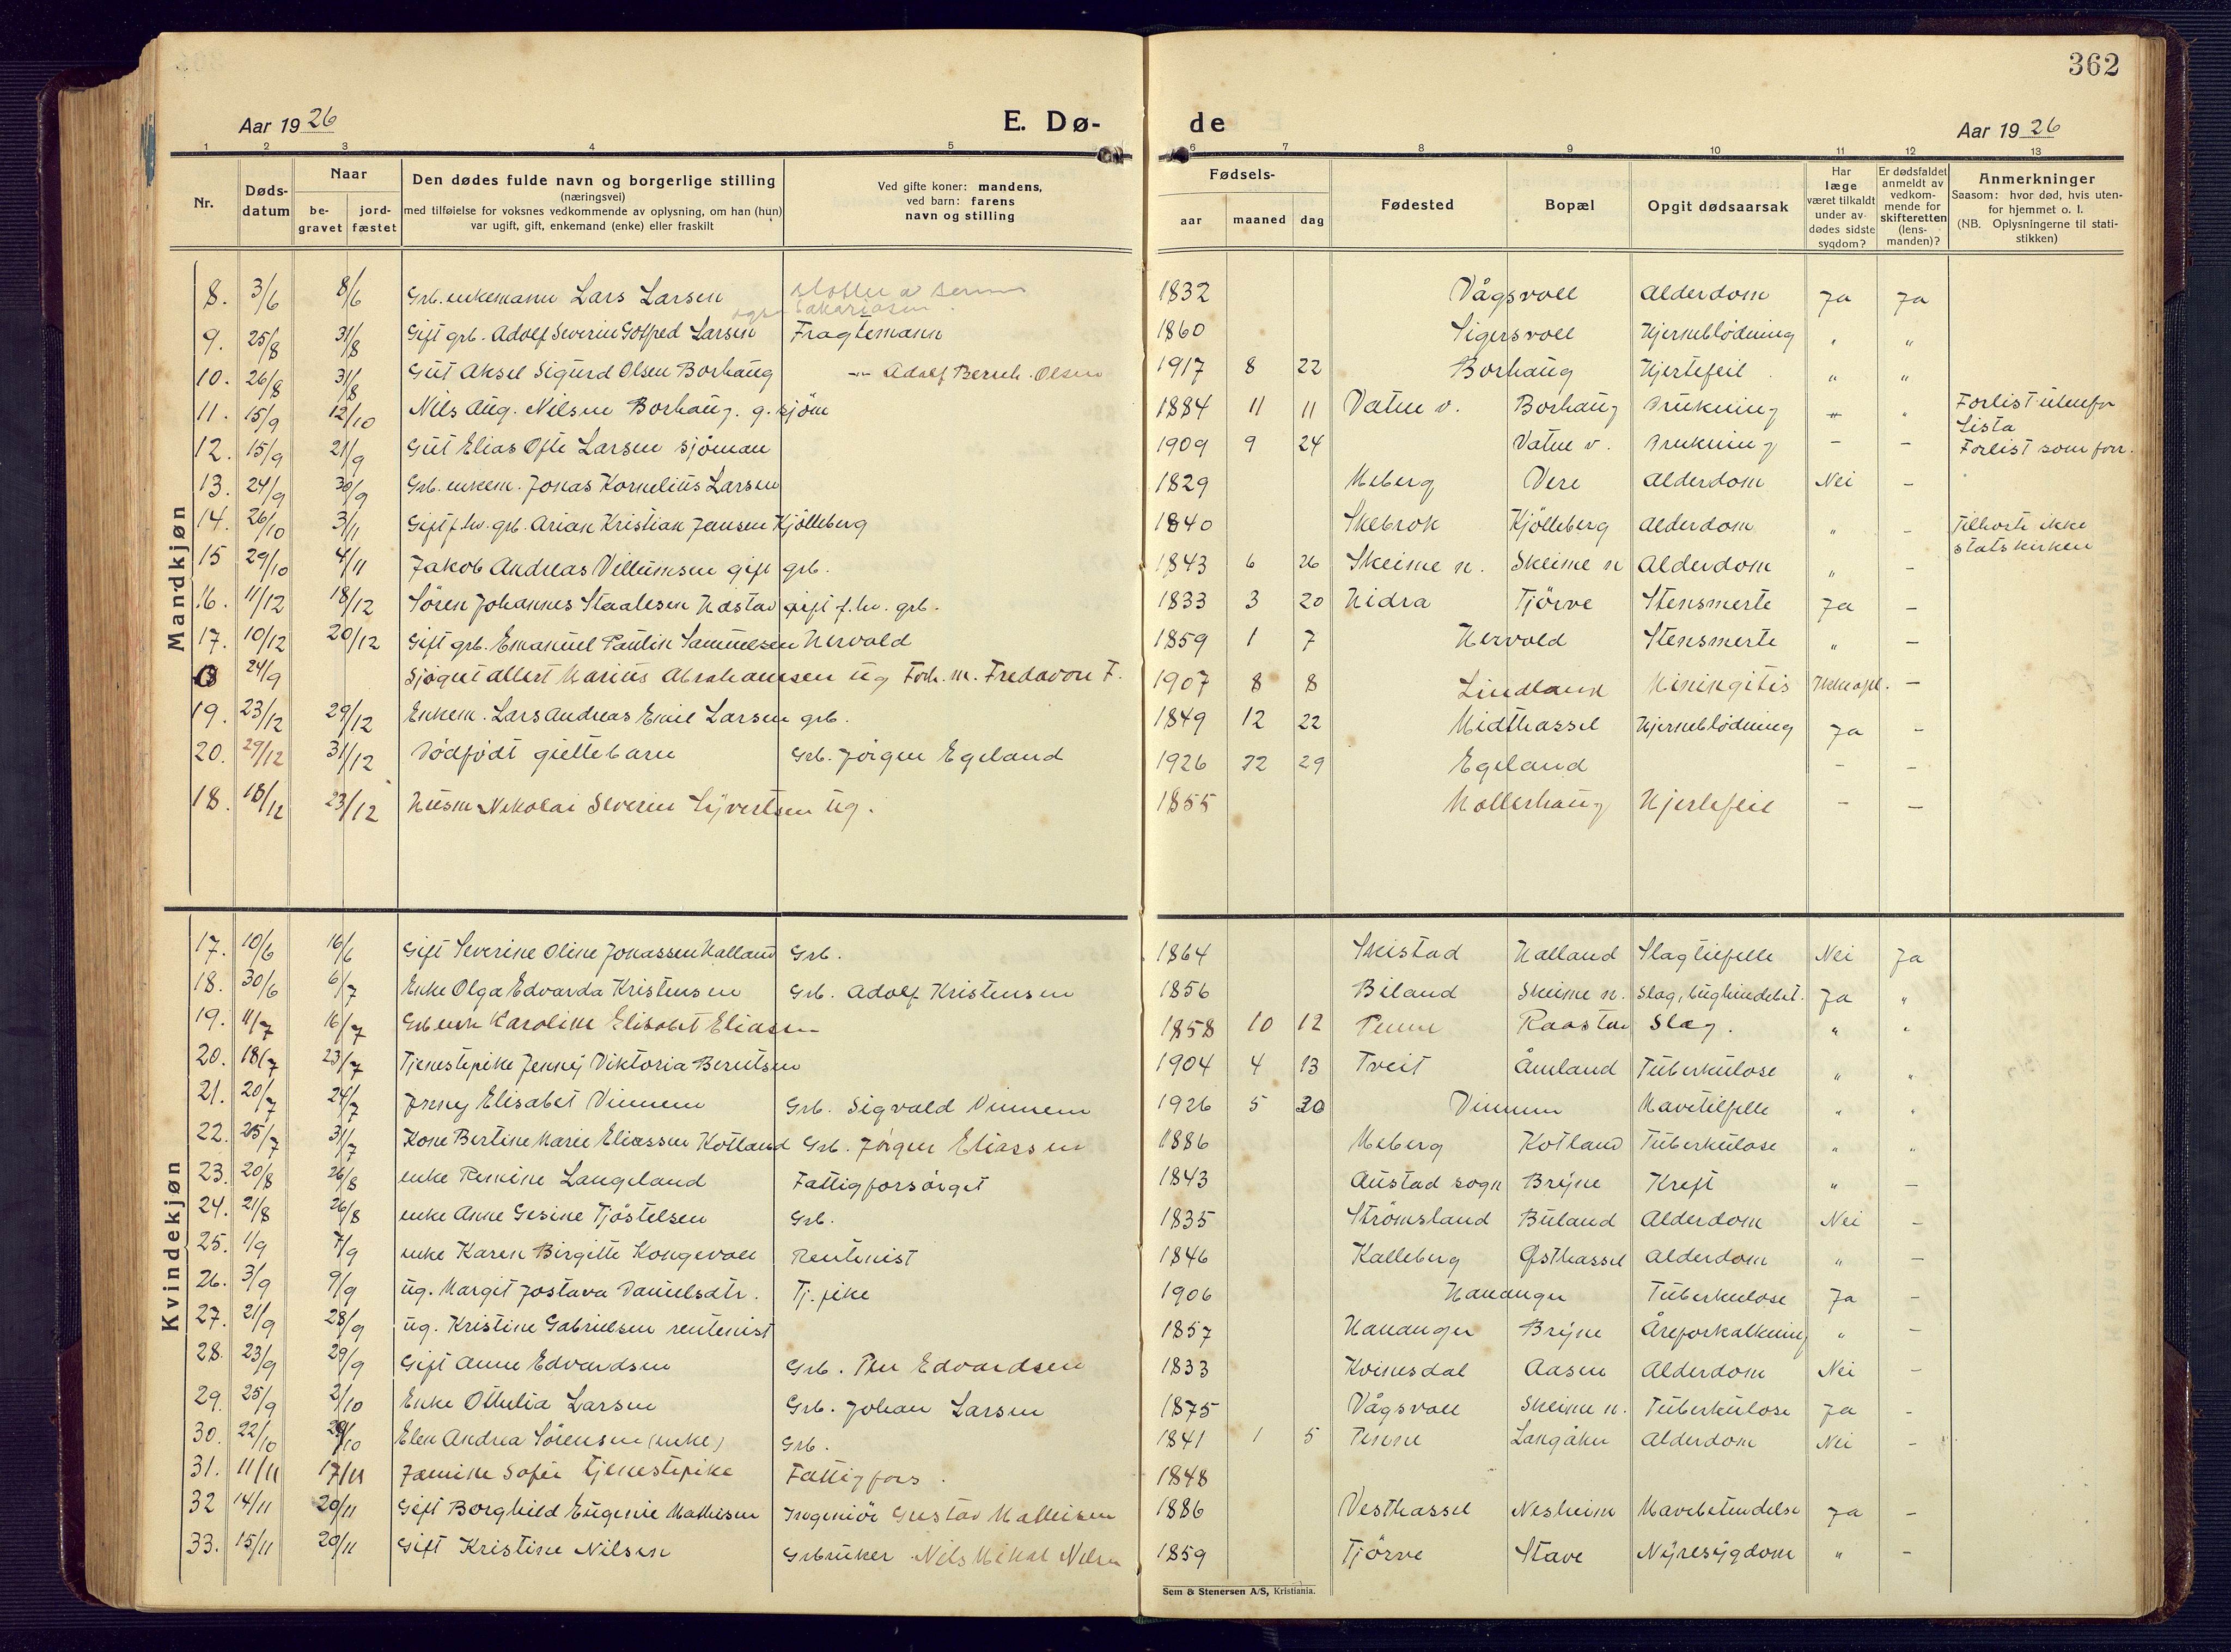 362
Aar 1926 E. Dø- de Aar 1926
1 2 3 4 5 6 7 8 9 10 11 12 13
Nr. Døds-datum Naar be-gravet jord-fæstet Den dødes fulde navn og borgerlige stilling (næringsvei) med tilføielse for voksnes vedkommende av oplysning, om han (hun) var ugift, gift, enkemand (enke) eller fraskilt Ved gifte koner: mandens, ved barn: farens navn og stilling Fødsels- aar maaned dag Fødested Bopæl Opgit dødsaarsak Har læge været tilkaldt under av-dødes sidste sygdom? Er dødsfaldet anmeldt av vedkom-mende for skifteretten (lens-manden)? Anmerkninger Saasom: hvor død, hvis uten-for hjemmet o. l. (NB. Oplysningerne til stati-stikken)
Mandkjøn
8. 3/6 8/6 Grb. enkemann Lars Larsen 1832 Vågsvoll Alderdom Ja Ja
9. 25/8 31/8 Gift grb. Adolf Severin Gotfred Larsen Fragtemann 1860 Sigersvoll Hjerneblödning " "
10. 26/8 31/8 Gut Aksel Sigurd Olsen Borhaug -"- Adolf Bernh. Olsen 1917 8 22 Borhaug Hjertefeil " "
11. 15/9 12/10 Nils Aug. Nilsen Borhaug. g. sjöm 1884 11 11 Vatne v. Borhaug Drukning " Forlist utenfor Lista
12. 15/9 21/9 Gut Elias Ofte Larsen sjöman 1909 9 24 Vatne v. Drukning – – Forlist som forr.
13. 24/9 30/9 Grb. enkem. Jonas Kornelius Larsen 1829 Meberg Vere Alderdom Nei –
14. 26/10 3/11 Gift f.hv. grb. Arian Kristian Jansen Kjölleberg 1840 Skebrok Kjölleberg Alderdom " – Tilhorte ikke statskirken
15 29/10 4/11 Jakob Andreas Villumsen gift grb. 1843 6 26 Skeime n. Skeime n Alderdom " –
16. 11/12 18/12 Sören Johannes Staalesen Hastad gift f.hv. grb. 1833 3 20 Hidra Tjörve Stensmerte Ja –
17. 10/12 20/12 Gift grb. Emanuel Paulin Samuelsen Hervold 1859 1 7 Hervold Stensmerte " –
24/9 Sjögut Albert Marius Abrahamsen ug Forh. m. Fredavon F. 1907 8 8 Lindland Miningitis Ikke opl. –
19. 23/12 29/12 Enkem. Lars Andreas Emil Larsen grb. 1849 12 22 Midthassel Hjerneblödning Ja –
20. 29/12 31/12 Dödfödt guttebarn Grb. Jörgen Egeland 1926 12 29 Egeland – –
18. 18/12 23/12 Husm Nikolai Severin Syvertsen ug. 1855 Mollerhaug Hjertefeil – –
Kvindekjøn
17. 10/6 16/6 Gift Severine Oline Jonassen Halland Grb. 1864 Skeistad Halland Slagtilfelle Nei Ja
18. 30/6 6/7 Enke Olga Edvarda Kristensen Grb. Adolf Kristensen 1856 Biland Skeime n. Slag, lughindebet. Ja "
19. 11/7 16/7 Grb enke Karoline Elisabet Eliassen 1858 10 12 Penne Raastad Slag. " "
20. 18/7 23/7 Tjenestepike Jenny Viktoria Berntsen 1904 4 13 Tveit Åmland Tuberkulose " "
21. 20/7 24/7 Jenny Elisabet Vinnem Grb. Sigvald Vinnem 1926 5 30 Vinnem Mavetilfelle " "
22. 25/7 31/7 Kone Bertine Marie Eliassen Kotland Grb. Jörgen Eliassen 1886 Meberg Kotland Tuberkulose " "
23. 20/8 26/8 enke Remine Langeland Fattigforsörget 1843 Austad sogn Bryne Kreft " –
24. 21/8 26/8 enke Anne Gesine Tjöstelsen Grb. 1835 Strömsland Buland Alderdom Nei –
25. 1/9 7/9 enke Karen Birgitte Kongevoll Rentenist 1846 Kalleberg Østhassel Alderdom " –
26. 3/9 9/9 ug. Margit Jostava Danielsdtr. Tj. pike 1906 Hananger Tuberkulose Ja –
27. 21/9 28/9 ug. Kristine Gabrielsen rentenist 1857 Hananger Bryne Åreforkalkning " –
28. 23/9 29/9 Gift Anne Edvardsen Grb. Per Edvardsen 1833 Kvinesdal Aasen Alderdom Nei –
29. 25/9 2/10 Enke Ottelia Larsen Grb. Johan Larsen 1875 Vågsvoll Skeime n. Tuberkulose Ja –
30. 22/10 29/10 Elen Andrea Sörensen (enke) Grb. 1841 1 5 Penne Langåker Alderdom Nei –
31. 11/11 17/11 Jamine Sofie tjenestepike Fattigfors. 1848
32 14/11 20/11 Gift Borghild Eugenie Mathisen Ingeniör Gustav Mathisen 1886 Vesthassel Nesheim Mavebetendelse Ja –
33. 15/11 20/11 Gift Kristine Nilsen Grbruker Nils Mikal Nilsen 1859 Tjörve Stave Nyresygdom " –
Sem & Stenersen A/S, Kristiania.